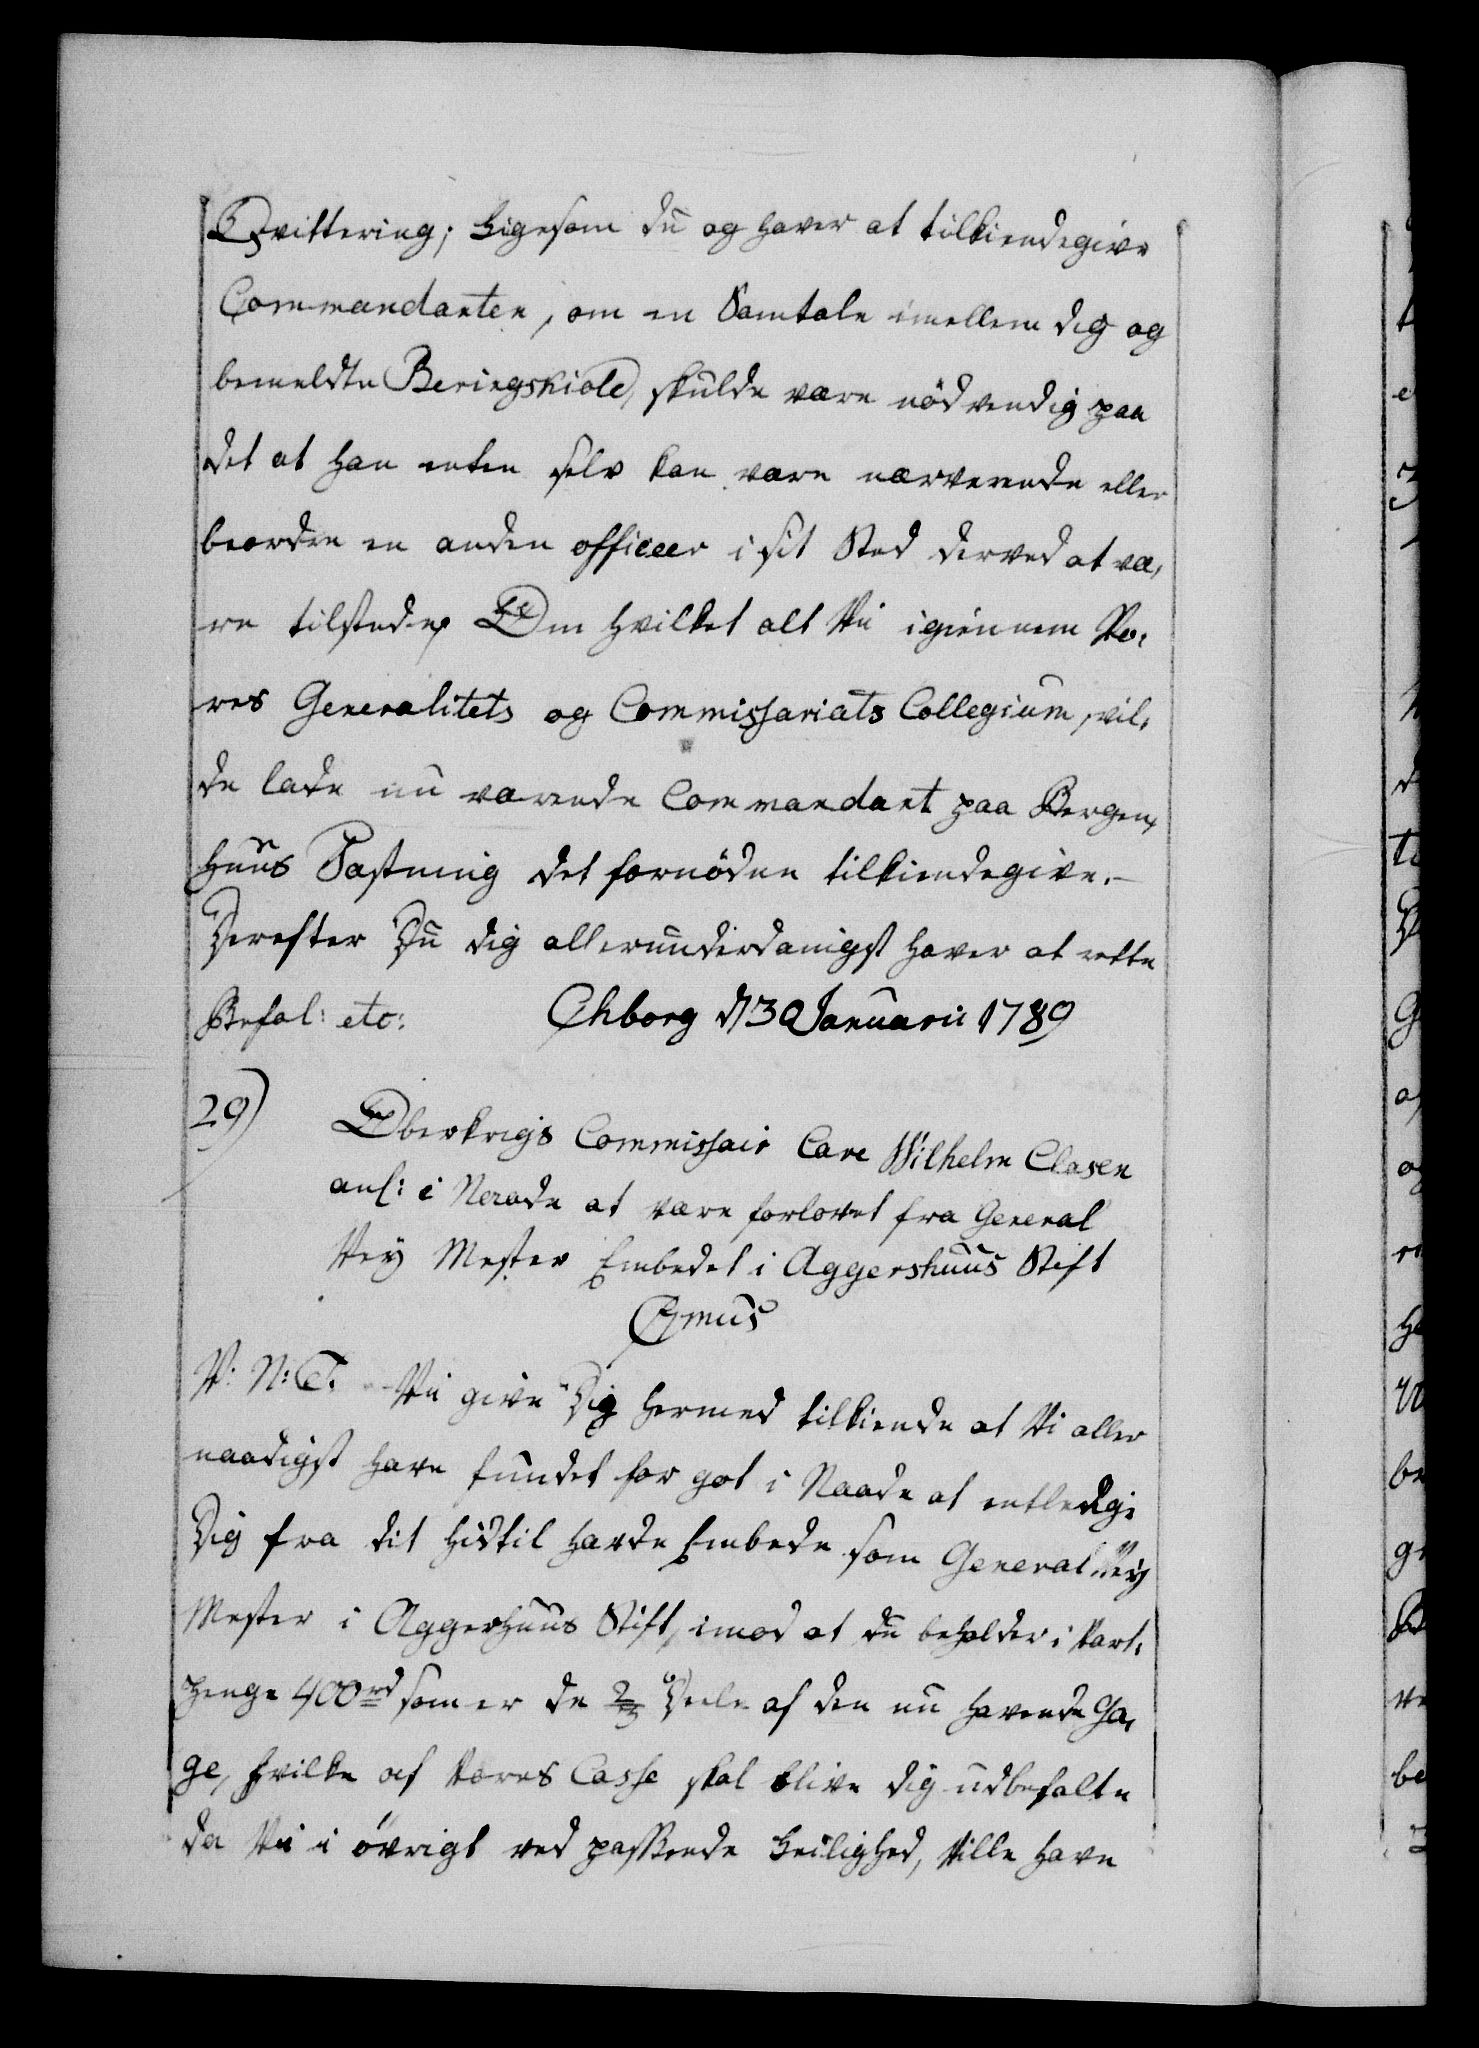 Qvittering; ligesom du og haver at tilkiendegive
Commandanten, om en Samtale imellem dig og
bemeldte Beringskiold, skulde være nödvendig paa
det at han enten selv kan være nærværende eller
beordre en anden officeer i sit Sted derved at væ,
re tilstede. Om hvilket alt Vii igiennem Vo,
res Generalitets og Commissariats Collegium, vil,
de lade nu værende Commandant paa Bergen,
huus Fæstning det fornödne tilkiendegive.
Derefter Du dig allerunderdanigst haver at rette
Befal: etc: Chborg d 30 Januarii 1789
29) Oberkrigs Commissair Carl Wilhelm Clasen
anl: i Naade at være forlovet fra General
Vey Mester Embedet i Aggershuus Stift
C7mus
V: N: T. Vii give Dig hermed tilkiende at Vi aller
naadigst have fundet for got i Naade at entledige
Dig fra dit hidtil havde Embede som General Vey
Mester i Aggerhuus Stift, imod at du beholder i Vart,
penge 400rd som er de 2/3 Deele af den nu havende Ga,
ge, hvilke af Vores Casse skal blive dig udbetalte
da Vii i övrigt ved passende Leilighed, Ville have